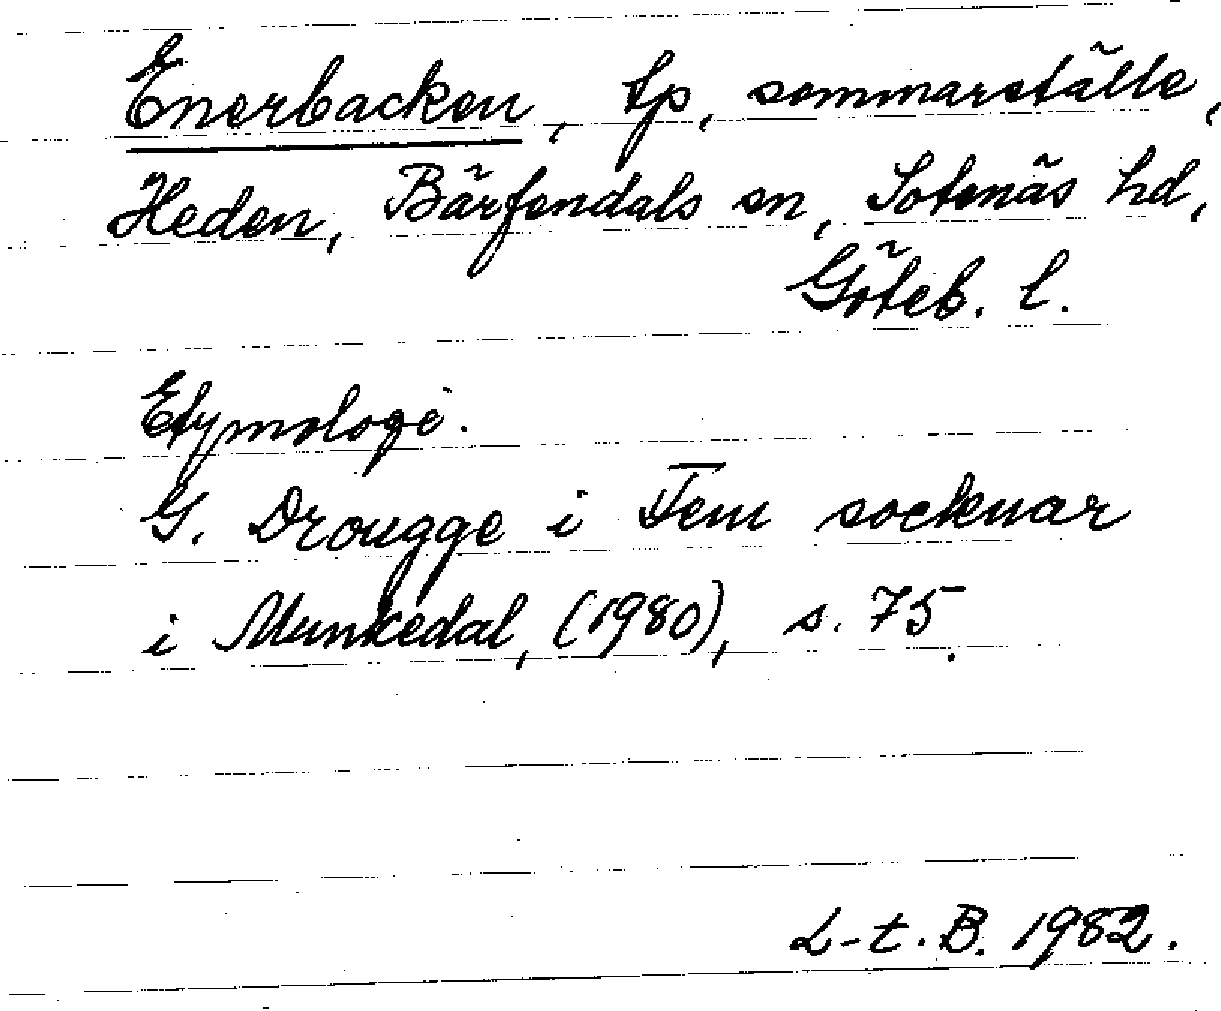 Enerbacken, tp, sommarställe,
Heden, Bärfendals sn, Sotenäs hd,
Göteb. l.
Etymologi.
G. Drougge i Fem socknar
i Munkedal, (1980), s. 75.
L-t. B. 1982.